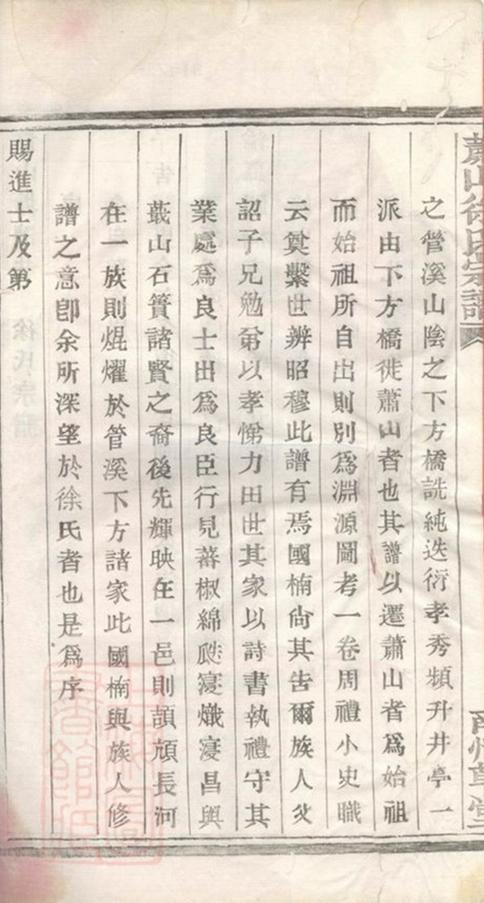 蕭山徐氏宗譜
之管溪山陰之下方橋詵純迭衍孝秀頻升井亭一
派由下方橋徙蕭山者也其譜以遷蕭山者爲始祖
而始祖所自出則別爲淵源圖考一卷周禮小史職
云奠繫世辨昭穆此譜有焉國楠尙其告爾族人父
詔子兄勉弟以孝悌力田世其家以詩書執禮守其
業處爲良士出爲良臣行見蕃椒綿瓞寖熾寖昌與
蕺山石簣諸賢之裔後先輝映在一邑則頡頏長河
在一族則焜燿於管溪下方諸家此國楠與族人修
譜之意卽余所深望於徐氏者也是爲序
賜進士及第